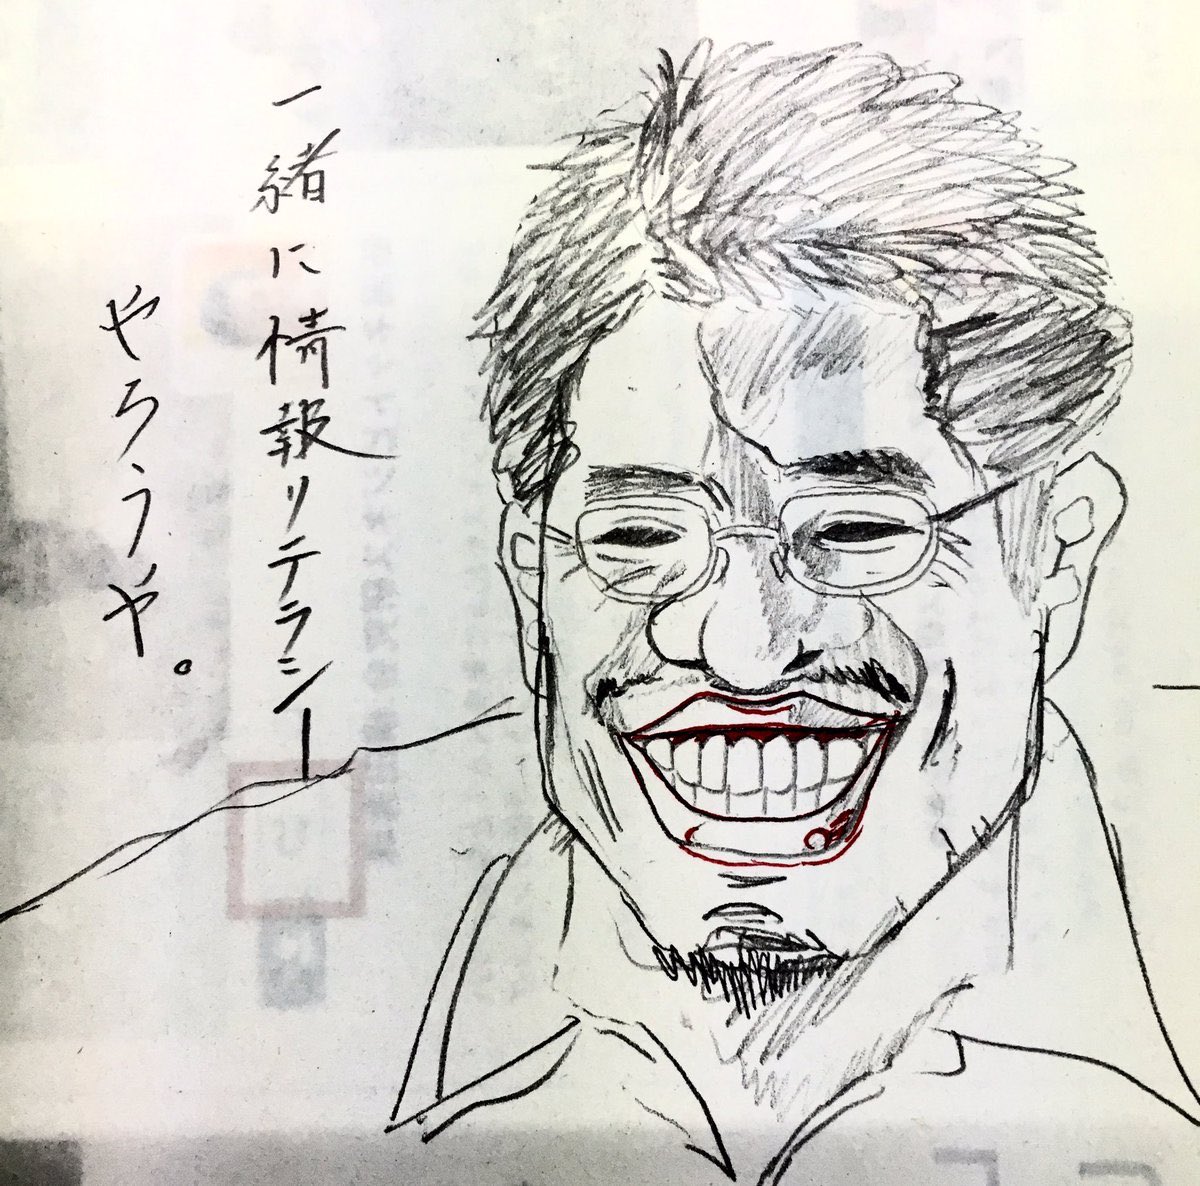 一緒に情報リテラシー
やろうや。